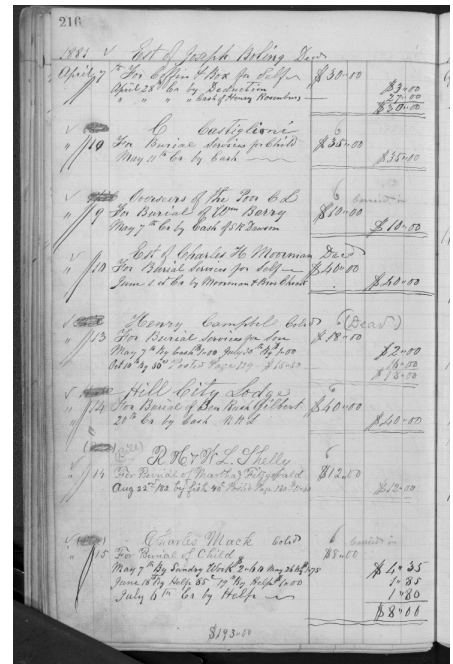 216
1881 Est of Joseph Boling Decd
April 7 For Coffin & Box for Self $30.00
April 28th Cr by Deduction $3.00
" " " " Cash of Henry 27.00
$30.00
C Castiglioni
" 10 For Burial Services for Child $35.00
May 11th Cr by Cash $35.00
Overseers of the Poor C L carried in
" 9 For Burial of Wm Berry $10.00
May 7th Cr by Cash of Dawson $10.00
Est of Charles H Moorman Decd
" 10 For Burial Services for Self $40.00
June 1st Cr by Moorman & $40.00
Henry Campbell Cold (Dead)
" 13 For Burial Services for Son $18.00
May 7th By Cash 1.00 July 30th By $1.00 $2.00
Oct 10th by Posted Page 129 $16.00 16.00
$18.00
Hill City Lodge
" 14 For Burial of Ben Rush Gilbert $40.00
20th Cr by Cash $40.00
R H & W L Shelly
" 14 For Burial of Martha Fitzgerald $12.00
Aug 22nd 1882 by Cash Posted Page $12.00
Charles Mack Cold carried in
" 15 For Burial of Child $8.00
May 7th By Sunday Work May 26 $4.35
June 18th By Help 85c 19th By Help $1.00 1.85
July 6th Cr by Help 1.80
$8.00
$193.00